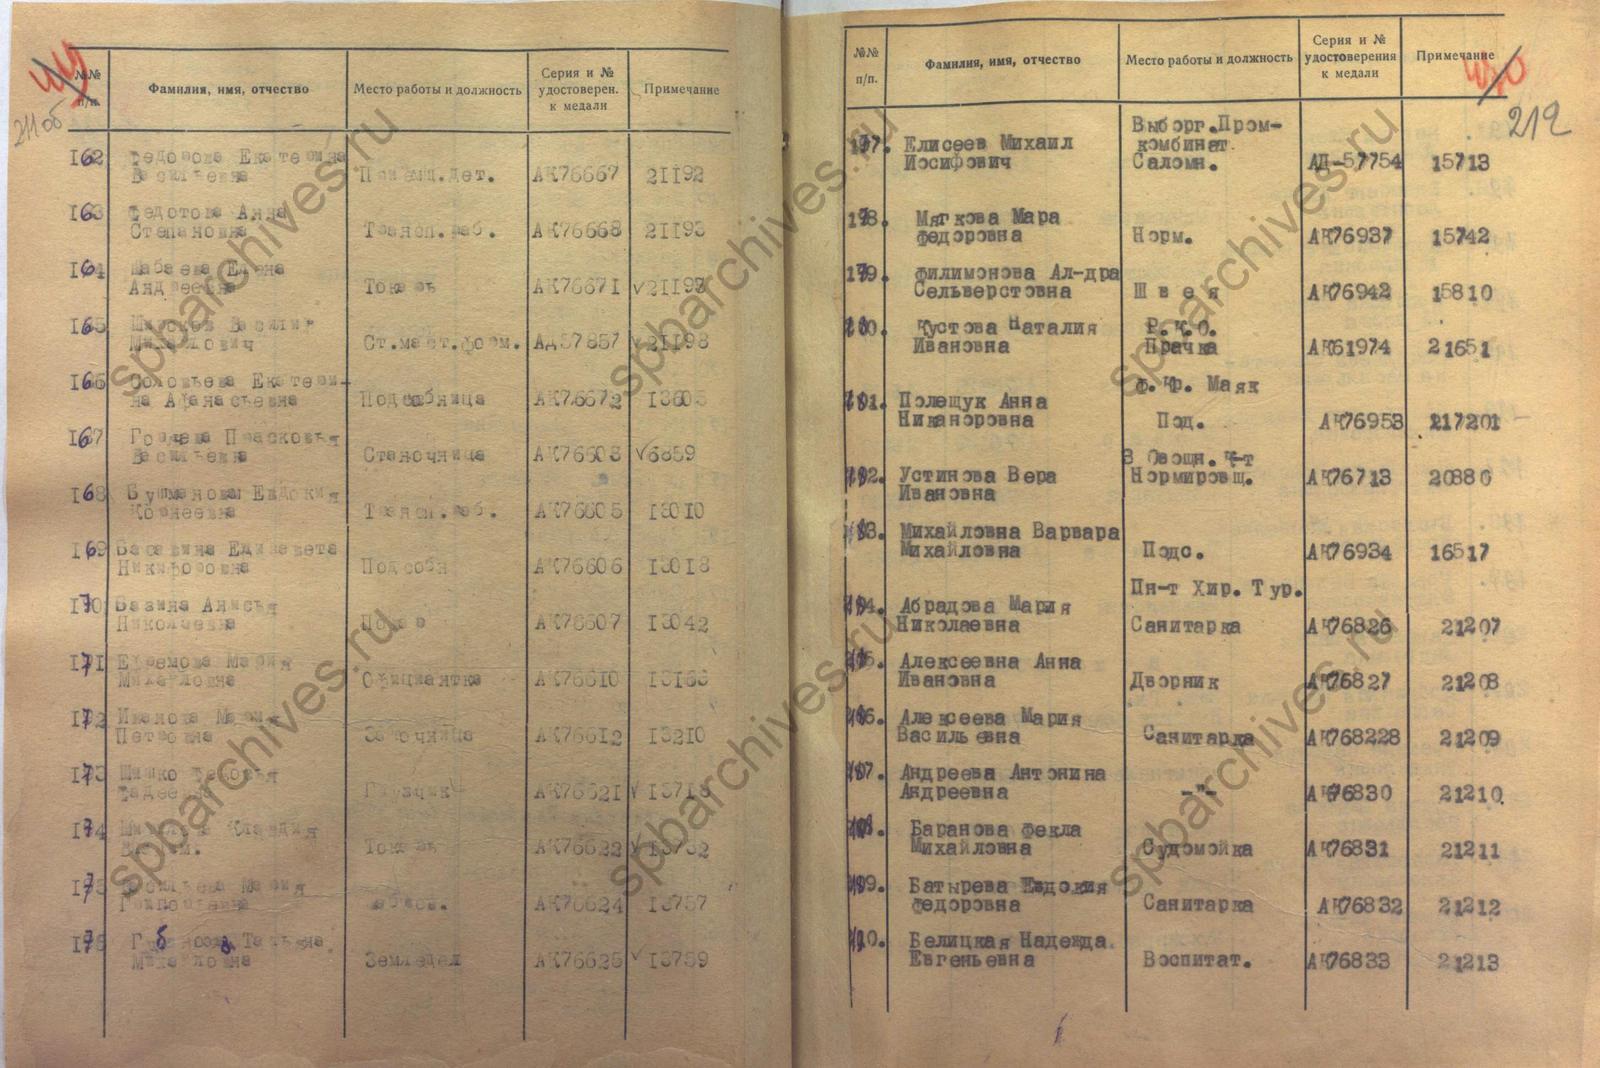 211об
№№ п/п.
Фамилия, имя, отчество
Место работы и должность
Серия и № удостоверен. к медали
Примечание
162 Федорова Екатерина
Васильевна АК76667 21192
163 Федотова Анна
Степановна Трансп.раб. АК76668 21193
164 Шабаева Елена
Андреевна Токарь АК76671 √21197
165 Василий
Михайлович Ст.маст.форм. АД57857 21198
166 Соловьева Екатери-
на Афанасьевна Подсобница АК76672
167 Прасковья
Васильевна Станочница АК76603 √6859
168 Евдокия
Корнеевна Трансп.раб. АК76605 13010
169 Елизавета
Никифоровна Подсобн АК76606 13018
170 Базина Анисья
Николаевна АК76607 13042
171 Ефремова Мария
Михайловна Официантка АК76610
172 Иванова Мария
Петровна Заточница АК76612 13210
173 Шишко Федосья
Фадеевна АК76621 √ 13718
174 Клавдия
Токарь АК76622 √ 13752
175 Васильева Мария
АК76624 13757
176 Татьяна
Михайловна Земледел АК76625 √ 13759
212
№№ п/п.
Фамилия, имя, отчество
Место работы и должность
Серия и № удостоверения к медали
Примечание
Выборг.Пром-
177. Елисеев Михаил комбинат
Иосифович Саломн. АД-57754 15713
178. Мягкова Мара
Федоровна Норм. АК76937 15742
179. Филимонова Ал-дра
Сельверстовна Швея АК76942 15810
Кустова Наталия Р.К.О.
Ивановна Прачка АК61974 21651
ф.Кр. Маяк
Полещук Анна
Никаноровна Под. АК76953 217201
3 Овощн. к-т
Устинова Вера Нормировщ. АК76713 20880
Ивановна
Михайловна Варвара
Михайловна Подс. АК76934 16517
Пн-т Хир. Тур.
Абрадова Мария
Николаевна Санитарка АК76826 21207
Алексеевна Анна
Ивановна Дворник АК76827 21208
Алексеева Мария
Васильевна Санитарка АК768228 21209
Андреева Антонина
Андреевна -"- АК76830 21210
Баранова Фекла
Михайловна Судомойка АК76831 21211
Батырева Евдокия
Федоровна Санитарка АК76832 21212
Белицкая Надежда
Евгеньевна Воспитат. АК76833 21213
spbarchives.ru
spbarchives.ru
spbarchives.ru
spbarchives.ru
spbarchives.ru
spbarchives.ru